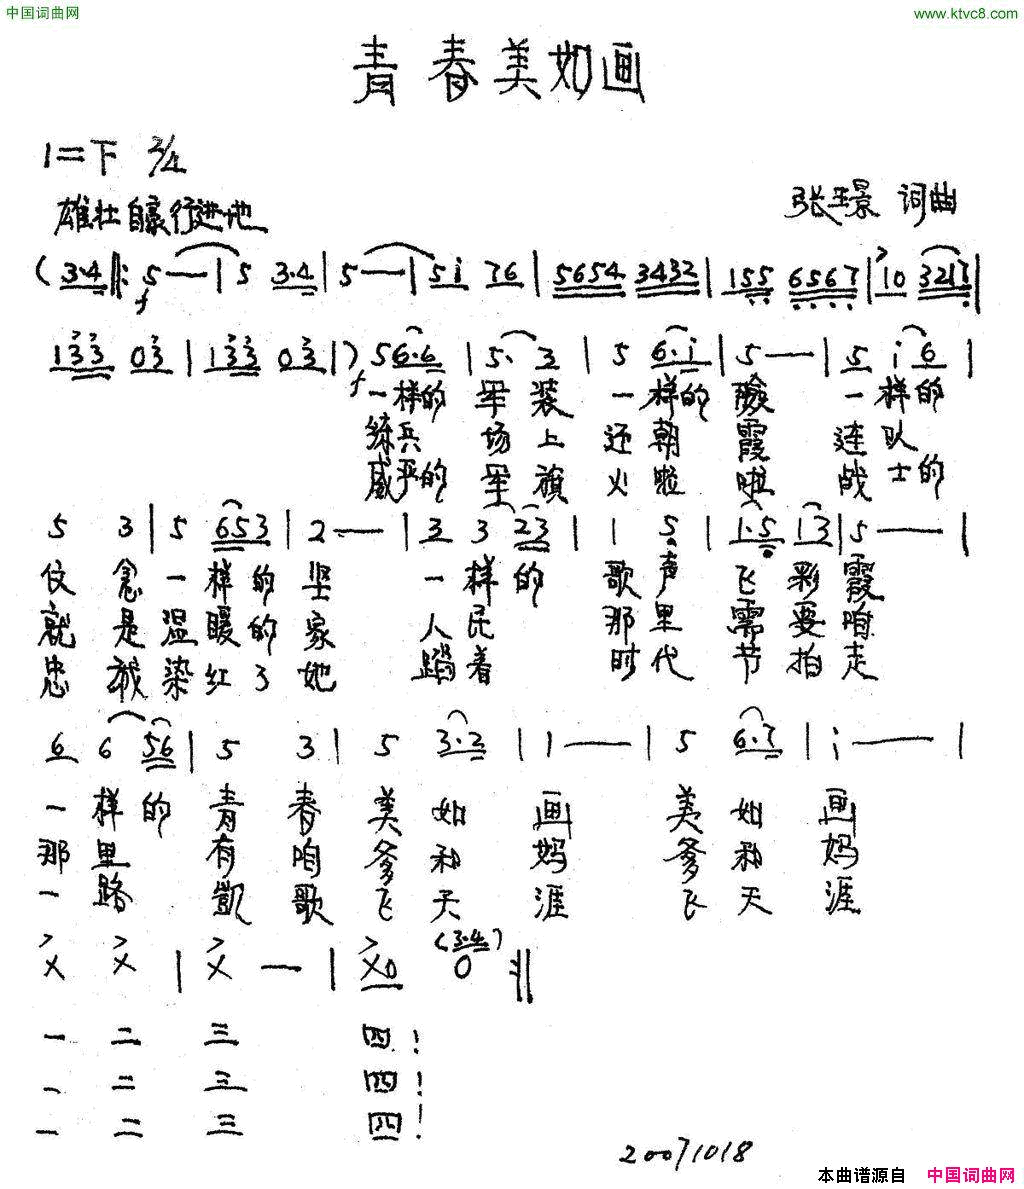 中国词曲网
www.ktvc8.com
青春美如画
1=下 2/4
雄壮自豪行进地
张玉景 词曲
(3·4 ‖: 5 — | 5 3·4 | 5 — | 5 i 76 | 5654 3432 | 155 6567 | 10 3217 |
f
133 03 | 133 03 | ) 5 6·6 | 5· 3 | 5 6·i | 5 — | 5 i 6 |
f
一样的 军装 一样的 脸 一样的
练兵 场上 还朝 霞 连队
威严的 军旗 火啦 啦 战士的
5 3 | 5 653 | 2 — | 3 3 23 | 1 5 | 1·5 13 | 5 — |
信念一样的坚 一样的 歌声 飞彩霞
就是温暖的家 人民 那里 需要咱
忠诚染红了她 踏着 时代 节拍走
6 6 56 | 5 3 | 5 3·2 | 1 — | 5 6·7 | i — |
一样的 青春 美如画 美如画
那里 有咱 爹和妈 爹和妈
一路 凯歌 飞天涯 飞天涯
X X | X — | X0 0 :‖
(3·4)
一 二 三 四!
一 二 三 四!
一 二 三 四!
20071018
本曲谱源自 中国词曲网